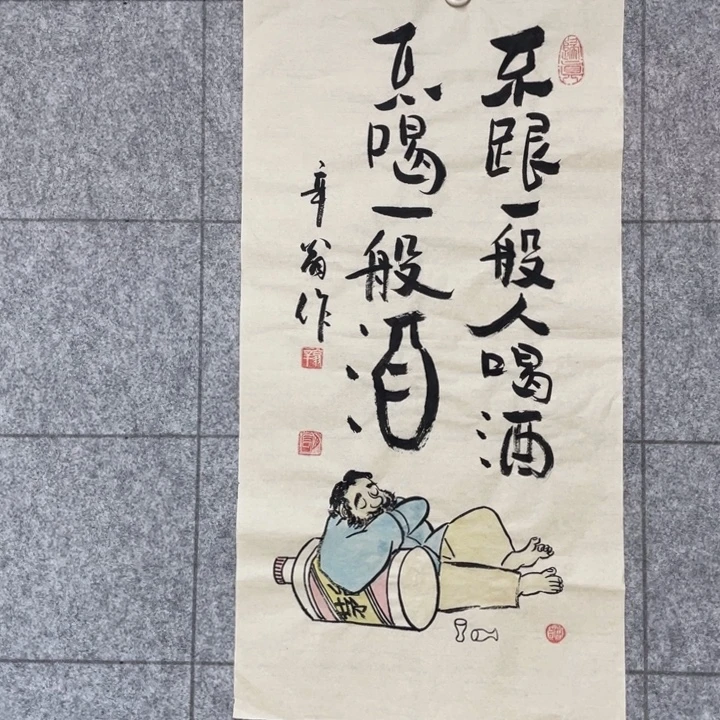 不跟一般人喝酒
不喝一般酒
辛翁作
茅台